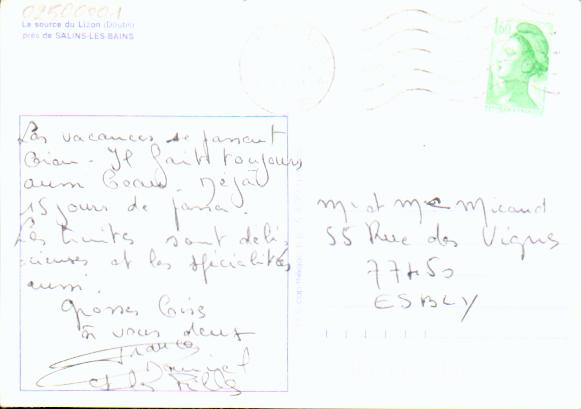 02500801
La source du Lizon (Doubs)
près de SALINS-LES-BAINS
1,60
Les vacances se passent
bien. Il fait toujours
aussi beau. Déjà
15 jours de passé.
Les truites sont déli
cieuses et les spécialités
aussi.
Grosses bises
à vous deux
Francis
et les filles
Mr et Mme Micaud
55 Rue des Vignes
77450
ESBLY